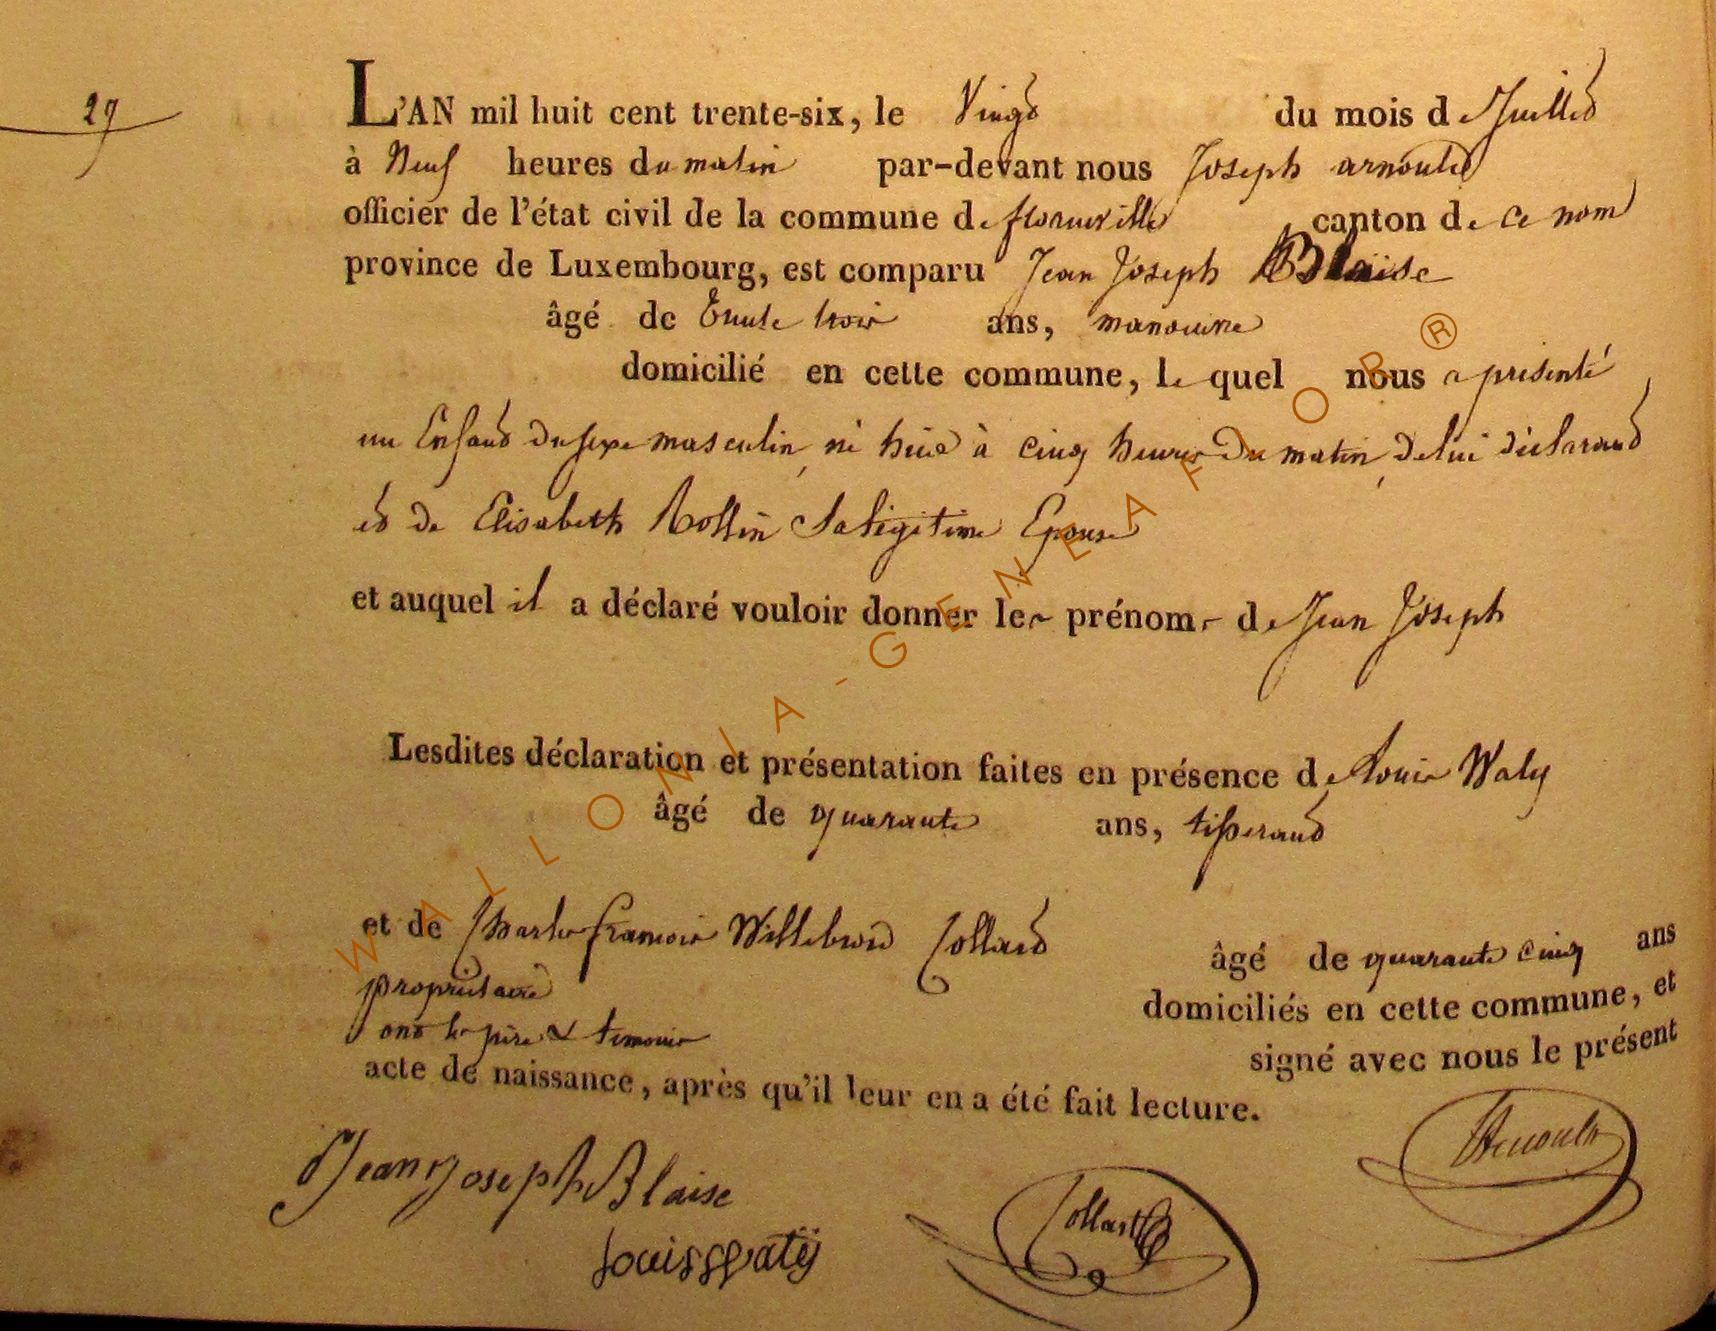 29
L'AN mil huit cent trente-six, le Vingt du mois de Juillet
à Neuf heures du matin par-devant nous Joseph arnould
officier de l'état civil de la commune de florenville canton de ce nom
province de Luxembourg, est comparu Jean Joseph Blaise
âgé de Trente trois ans, manouvre
domicilié en cette commune, le quel nous a présenté
un Enfant du sexe masculin, né hier à cinq heures du matin, de lui déclarant
et de Elisabeth Rollin Sa légitime Epouse
et auquel il a déclaré vouloir donner les prénoms de Jean Joseph
Lesdites déclaration et présentation faites en présence de Louis Waty
âgé de quarante ans, tisserand
et de Charles francois Willebrord Collard âgé de quarante cinq ans
propriétaire domiciliés en cette commune, et
ont le père & temoins signé avec nous le présent
acte de naissance, après qu'il leur en a été fait lecture.
Jean Joseph Blaise
Louis Watÿ
Collart
Arnould
WALLONIA-GENEAFLOR®